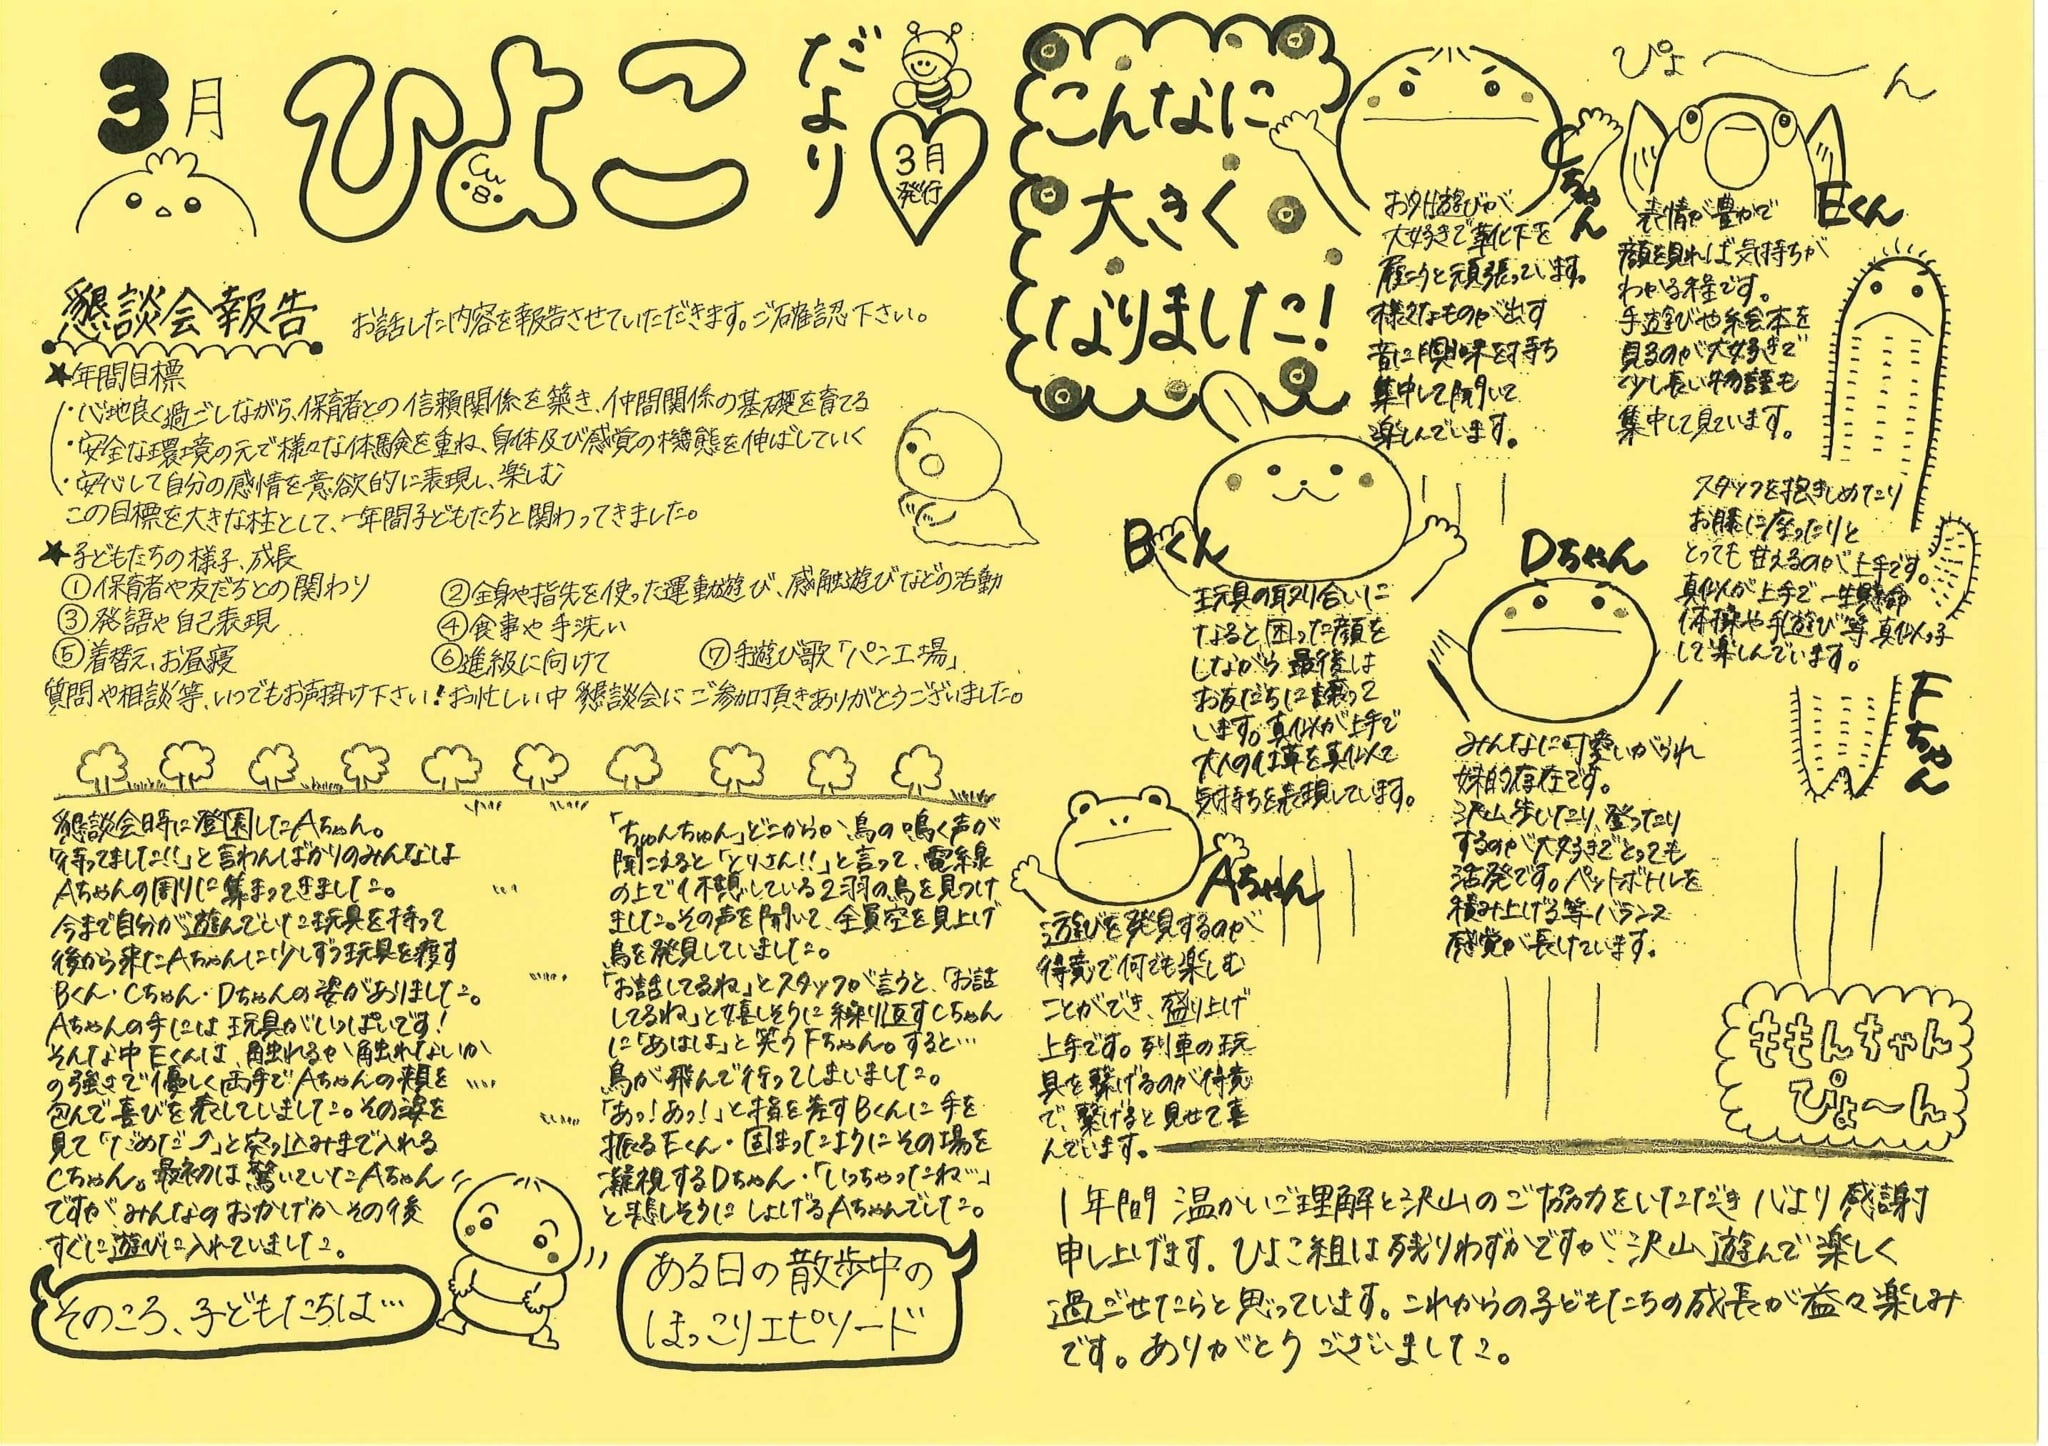 3月
ひよこ
だより
3月
発行
懇談会報告
お話した内容を報告させていただきます。ご確認下さい。
★年間目標
・心地良く過ごしながら、保育者との信頼関係を築き、仲間関係の基礎を育てる
・安全な環境の元で様々な体験を重ね、身体及び感覚の機能を伸ばしていく
・安心して自分の感情を意欲的に表現し、楽しむ
この目標を大きな柱として、一年間子どもたちと関わってきました。
★子どもたちの様子、成長
①保育者や友だちとの関わり
②全身や指先を使った運動遊び、感触遊びなどの活動
③発語や自己表現
④食事や手洗い
⑤着替え、お昼寝
⑥進級に向けて
⑦手遊び歌「パン工場」
質問や相談等、いつでもお声掛け下さい!お忙しい中 懇談会にご参加頂きありがとうございました。
懇談会時に登園したAちゃん。
「待ってました!!」と言わんばかりのみんなは
Aちゃんの周りに集まってきました。
今まで自分が遊んでいた玩具を持って
後から来たAちゃんに少しずつ玩具を渡す
Bくん・Cちゃん・Dちゃんの姿がありました。
Aちゃんの手には玩具がいっぱいです!
そんな中Eくんは、触れるか触れないか
の強さで優しく両手でAちゃんの頬を
包んで喜びを表していました。その姿を
見て「だめだーっ」と突っ込みまで入れる
Cちゃん。最初は驚いていたAちゃん
ですがみんなのおかげかその後
すぐに遊びに入れていました。
そのころ、子どもたちは…
「ちゅんちゅん」どこからか鳥の鳴く声が
聞こえると「とりさん!!」と言って、電線
の上で休憩している2羽の鳥を見つけ
ました。その声を聞いて、全員空を見上げ
鳥を発見していました。
「お話してるね」とスタッフが言うと、「お話
してるね」と嬉しそうに繰り返すCちゃん
に「あはは」と笑うFちゃん。すると…
鳥が飛んで行ってしまいました。
「あっ!あっ!」と指を差すBくんに手を
振るEくん・固まったようにその場を
凝視するDちゃん・「いっちゃったね…」
と悲しそうにしょげるAちゃんでした。
ある日の散歩中の
ほっこりエピソード
こんなに
大きく
なりました!
Cちゃん
お外遊びが
大好きで靴下を
履こうと頑張っています。
様々なものが出す
音に興味を持ち
集中して聞いて
楽しんでいます。
ぴょ〜ん
Eくん
表情が豊かで
顔を見れば気持ちが
わかる程です。
手遊びや絵本を
見るのが大好きで
少し長い物語も
集中して見ています。
Bくん
玩具の取り合いに
なると困った顔を
しながら最後は
お友だちに譲って
います。真似が上手で
大人の仕草を真似て
気持ちを表現しています。
Dちゃん
みんなに可愛いがられ
妹的存在です。
沢山歩いたり、登ったり
するのが大好きでとっても
活発です。ペットボトルを
積み上げる等バランス
感覚が長けています。
スタッフを抱きしめたり
お膝に座ったりと
とっても甘えるのが上手です。
真似が上手で一生懸命
体操や手遊び等真似っ子
して楽しんでいます。
Fちゃん
Aちゃん
遊びを発見するのが
得意で何でも楽しむ
ことができ、盛り上げ
上手です。列車の玩
具を繋げるのが得意
で、繋げると見せて喜
んでいます。
ももんちゃん
ぴょ〜ん
1年間 温かいご理解と沢山のご協力をいただき心より感謝
申し上げます。ひよこ組は残りわずかですが、沢山遊んで楽しく
過ごせたらと思っています。これからの子どもたちの成長が益々楽しみ
です。ありがとうございました。